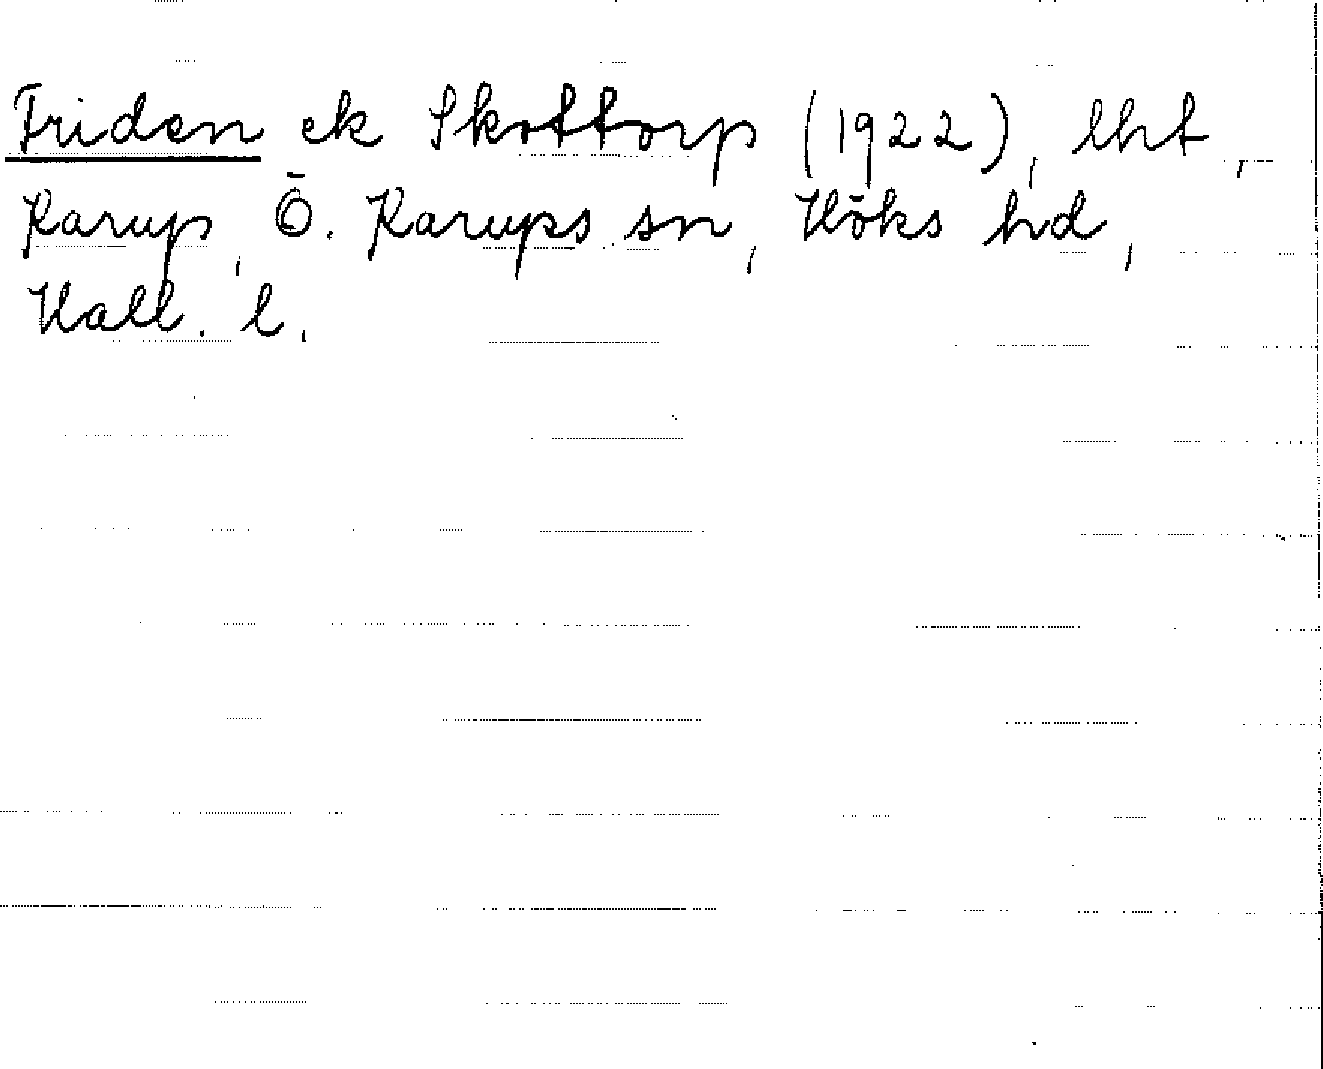 Friden ek Skottorp (1922), lht,
Karup, Ö. Karups sn, Höks hd,
Hall. l.